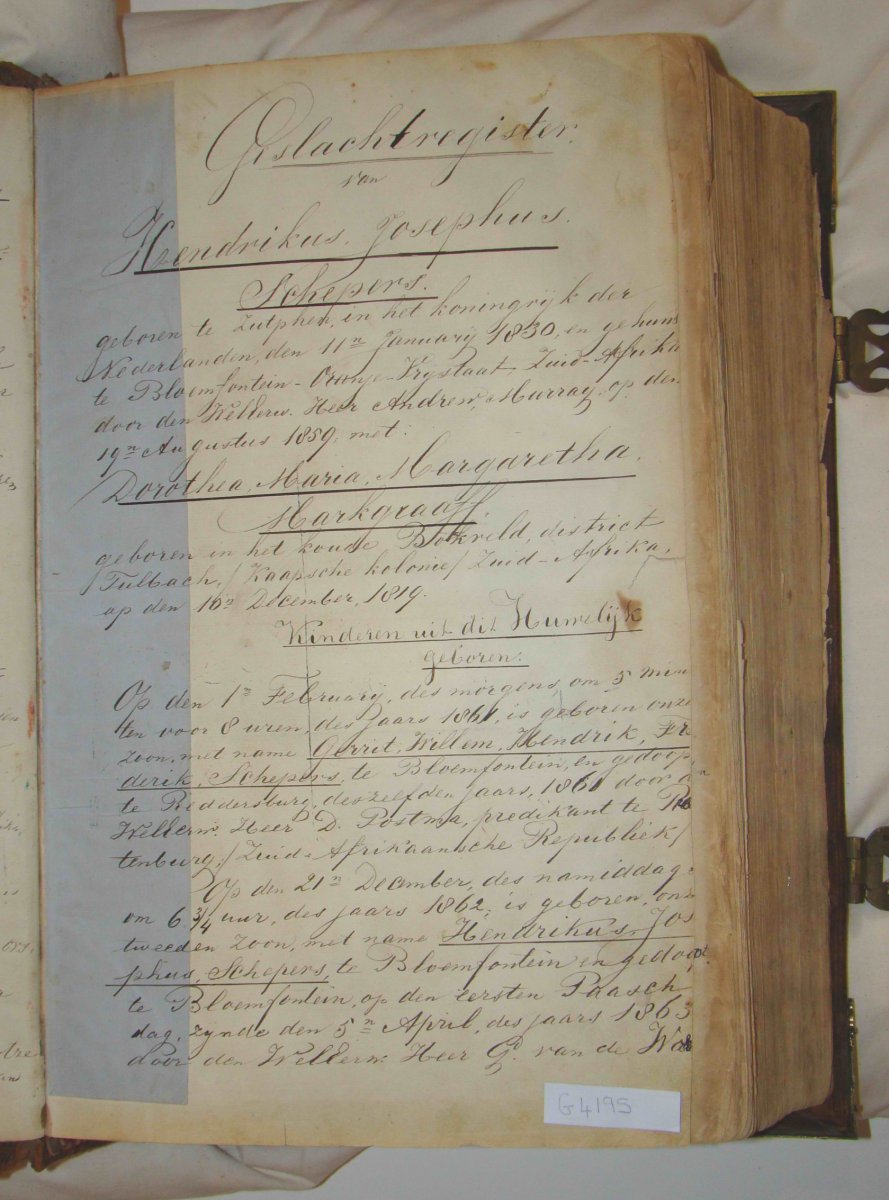 Geslachtregister.
van
Hendrikus. Josephus.
Schepers.
geboren te Zutphen, in het koningrijk der
Nederlanden, den 11n January 1830, en gehuwd
te Bloemfontein - Oranje-Vrystaat, Zuid-Afrika
door den WelEerw. Heer Andrew, Murray, op den
19n Augustus 1859, met:
Dorothea, Maria, Margaretha.
Markgraaff.
geboren in het koude Bokveld, district
Tulbach, / Kaapsche kolonie / Zuid-Afrika,
op den 16n December, 1819.
Kinderen uit dit Huwelijk
geboren.
Op den 1n February, des morgens, om 5 minu
ten voor 8 uren, des jaars 1861, is geboren onze
zoon, met name Gerrit, Willem, Hendrik, Fre
derik, Schepers, te Bloemfontein, en gedoopt
te Reddersburg, deszelfden jaars, 1861 door den
WelEerw. Heer D. Postma, predikant te Rus
tenburg, / Zuid-Afrikaansche Republiek /
Op den 21n December, des namiddags
om 6 3/4 uur, des jaars 1862, is geboren, onze
tweeden zoon, met name Hendrikus Jose
phus, Schepers, te Bloemfontein en gedoopt
te Bloemfontein, op den eersten Paasch
dag, zynde den 5n April, des jaars 1863
door den WelEerw. Heer Gd. van de Wal
G4195